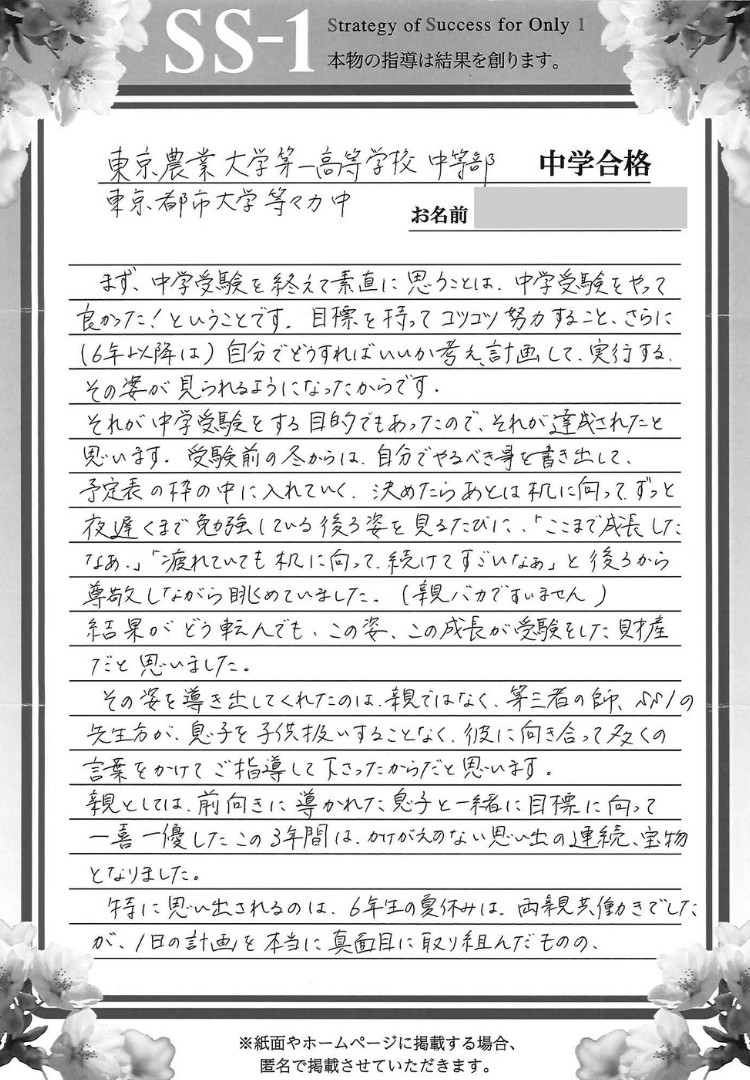 SS-1 Strategy of Success for Only 1
本物の指導は結果を創ります。
東京農業大学第一高等学校 中等部 中学合格
東京都市大学等々力中
お名前
まず、中学受験を終えて素直に思うことは、中学受験をやって
良かった！ということです。目標を持ってコツコツ努力すること、さらに
(6年以降は)自分でどうすればいいか考え、計画して、実行する、
その姿が見られるようになったからです。
それが中学受験をする目的でもあったので、それが達成されたと
思います。受験前の冬からは、自分でやるべき事を書き出して、
予定表の枠の中に入れていく、決めたらあとは机に向って、ずっと
夜遅くまで勉強している後ろ姿を見るたびに、「ここまで成長した
なぁ。」「疲れていても机に向って、続けてすごいなぁ」と後ろから
尊敬しながら眺めていました。(親バカですいません)
結果がどう転んでも、この姿、この成長が受験をした財産
だと思いました。
その姿を導き出してくれたのは、親ではなく、第三者の師、SS1の
先生方が、息子を子供扱いすることなく、彼に向き合って多くの
言葉をかけてご指導して下さったからだと思います。
親としては、前向きに導かれた息子と一緒に目標に向って
一喜一優したこの3年間は、かけがえのない思い出の連続、宝物
となりました。
特に思い出されるのは、6年生の夏休みは、両親共働きでした
が、1日の計画を本当に真面目に取り組んだものの、
※紙面やホームページに掲載する場合、
匿名で掲載させていただきます。